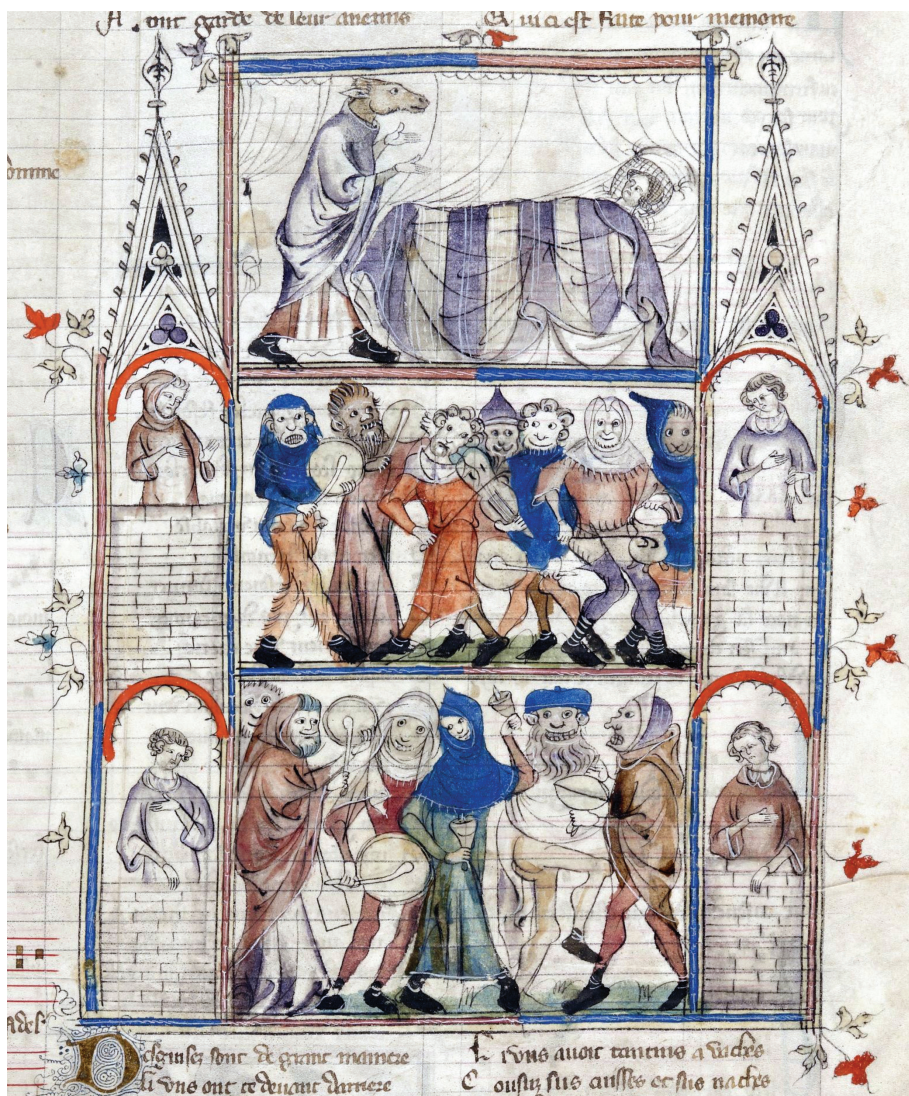 ont garde de leur anemis
ci est faite pour memoire
Desguisez sont de grant maniere
Li vns ont ce deuant darriere
Li vns auoit tantins a vaches
Cousuz sus cuisses et sus naches